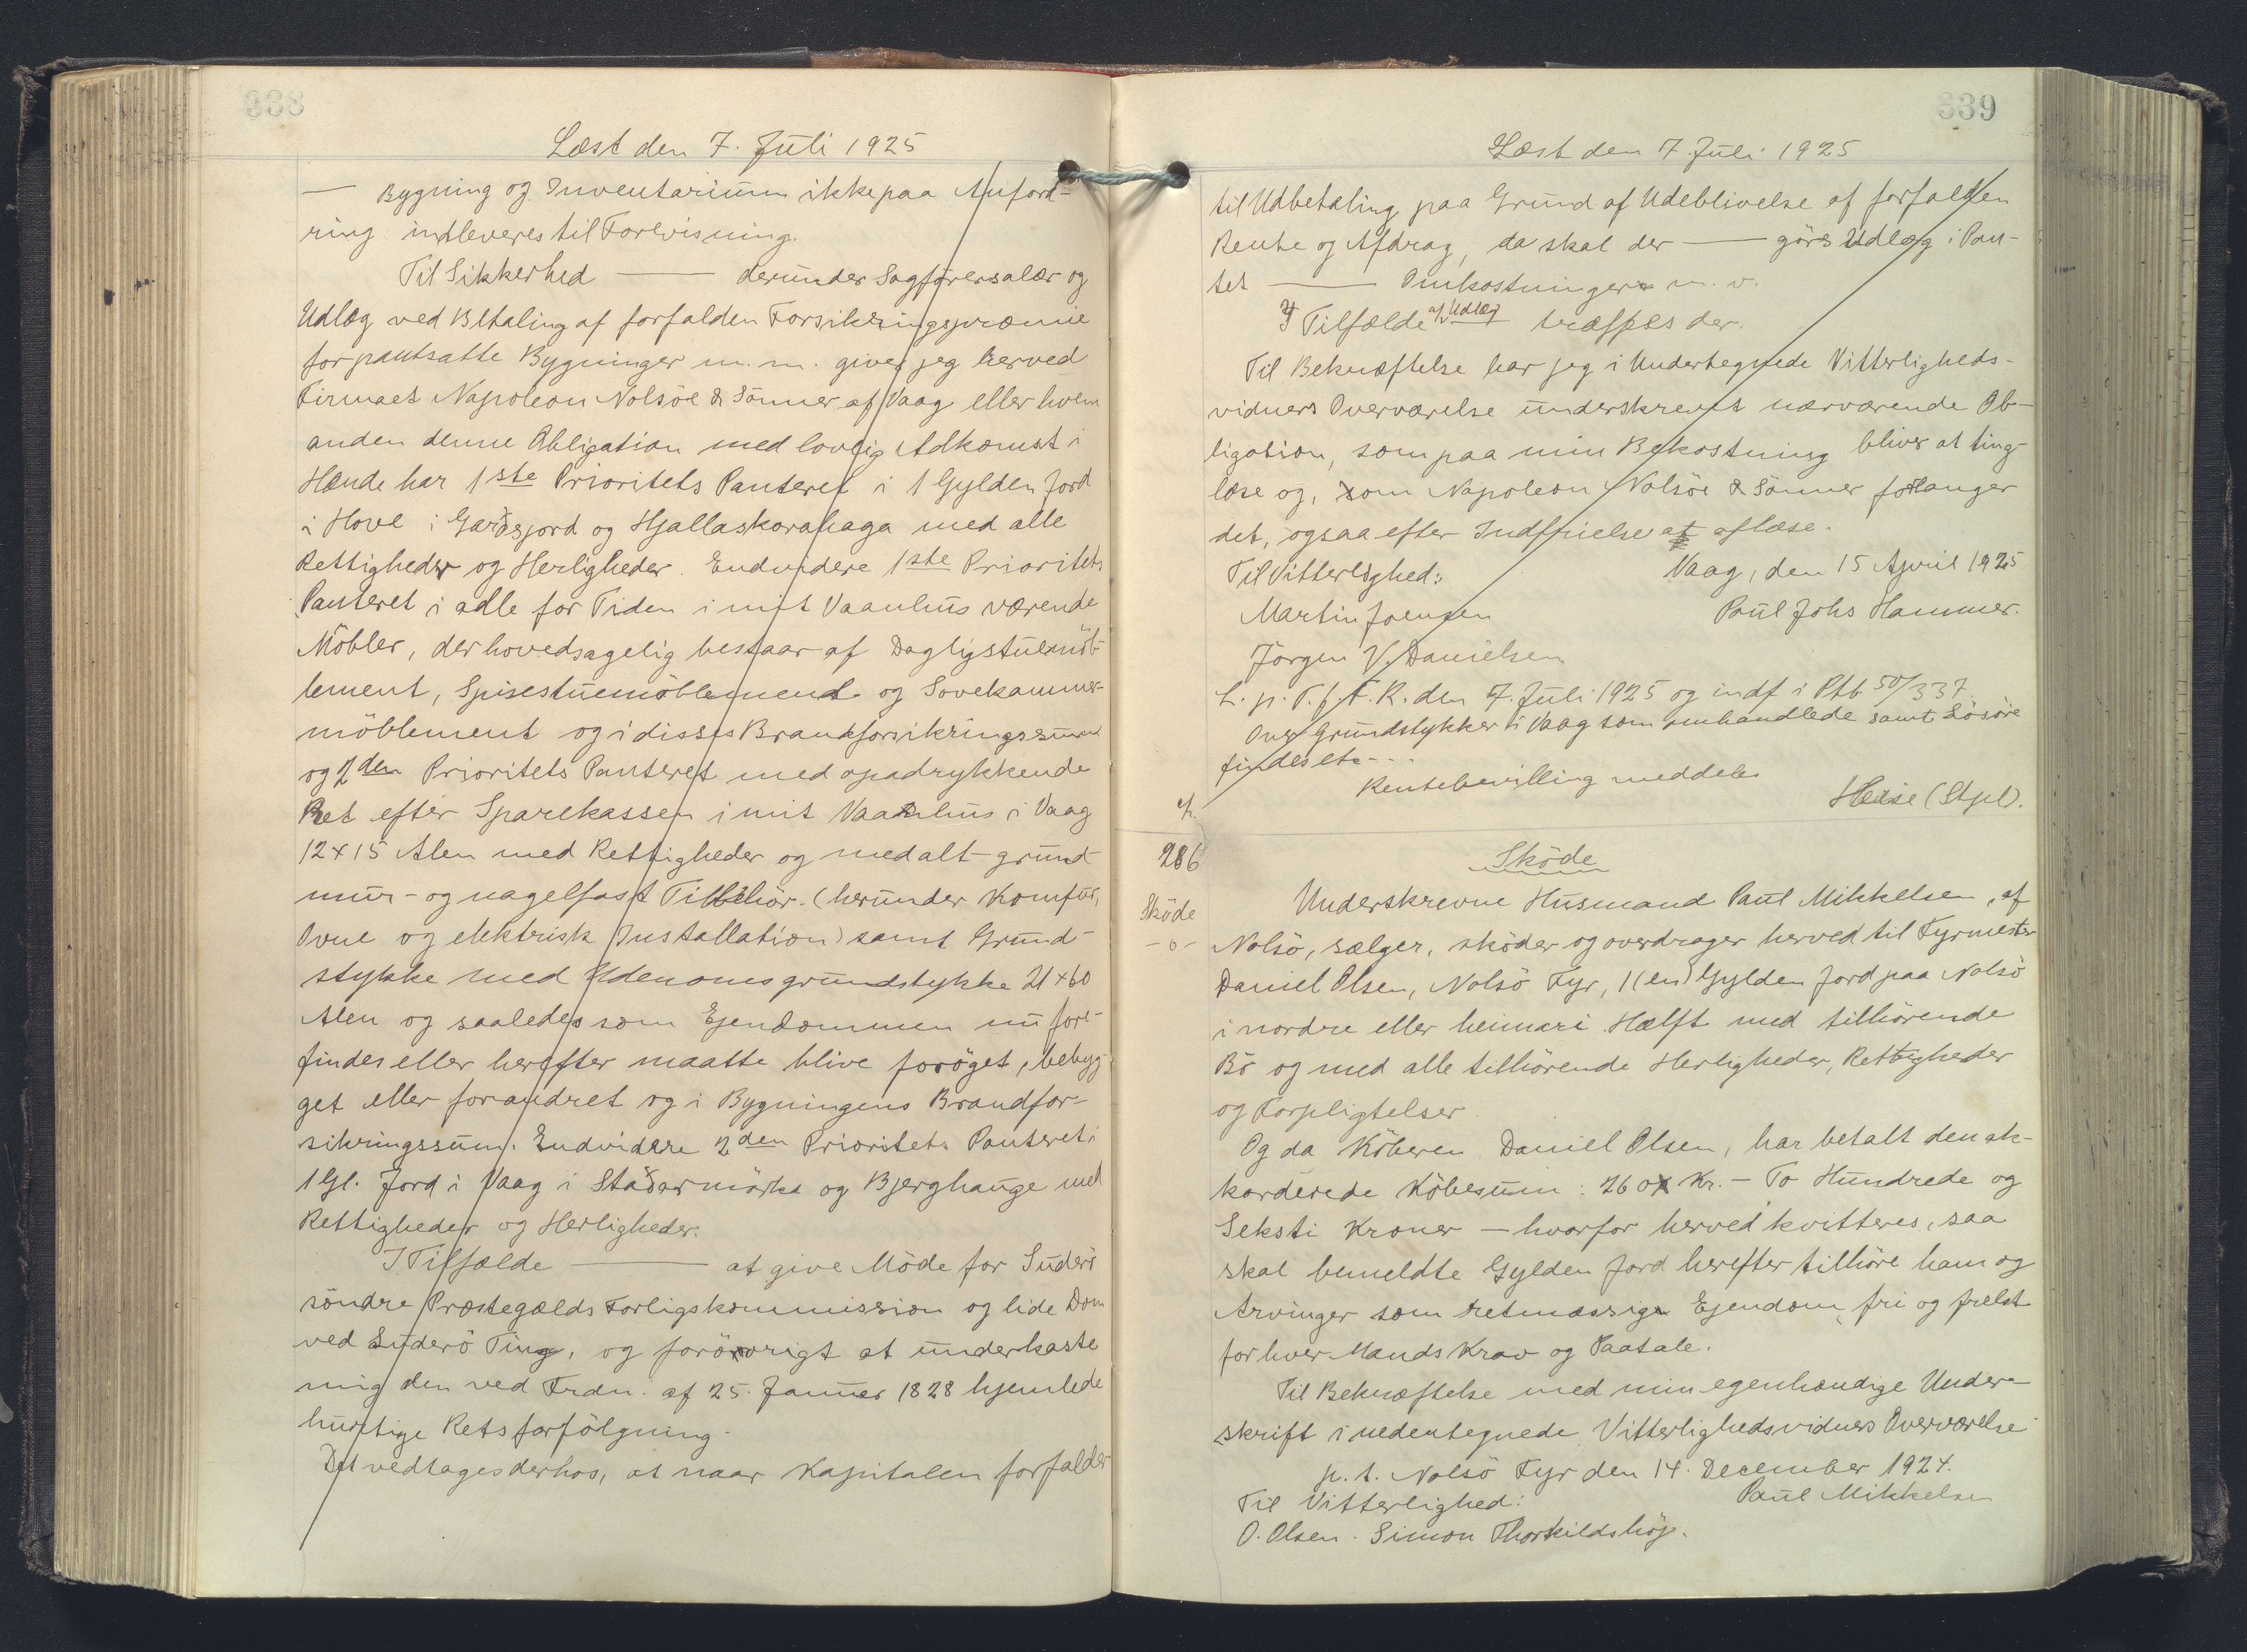 338
Læst den 7. Juli 1925
— Bygning og Inventarium ikke paa Anford-
ring indleveres til Forevisning.
Til Sikkerhed — derunder Sagførersalær og
Udlæg ved Betaling af forfalden Forsikringspræmie
for pantsatte Bygninger m. m. giver jeg herved
Firmaet Napoleon Nolsöe & Sönner af Vaag eller hvem
anden denne Obligation med lovlig Adkomst i
Hænde har 1ste Prioritets Panteret i 1 Gylden Jord
i Hove i Garðsjord og Hjallaskorahaga med alle
Rettigheder og Herligheder. Endvidere 1ste Prioritets
Panteret i alle for Tiden i mit Vaanhus værende
Möbler, der hovedsagelig bestaar af Dagligstuemöb-
lement, Spisestuemöblement og Sovekammer-
möblement og i disses Brandforsikringssum
og 2den Prioritets Panteret med opadrykkende
Ret efter Sparekassen i mit Vaanhus i Vaag
12 x 15 Alen med Rettigheder og med alt grund
mur- og nagelfast Tilbehör. (herunder Komfur,
Ovne og elektrisk Installation) samt Grund-
stykke med Udenomsgrundstykke 21 x 60
Alen og saaledes som Ejendommen nu fore-
findes eller herefter maatte blive foröget, bebyg-
get eller forandret og i Bygningens Brandfor-
sikringssum. Endvidere 2den Prioritets Panteret i
1 Gl. Jord i Vaag i Staðarmörka og Bjerghauge med
Rettigheder og Herligheder.
I Tilfælde — at give Möde for Suderö
söndre Præstegælds Forligskommission og lide Dom
ved Suderö Ting, og forövrigt at underkaste
mig den ved Frdn. af 25. Januar 1828 hjemlede
hurtige Retsforfölgning.
Det vedtages derhos, at naar Kapitalen forfalder
339
Læst den 7. Juli 1925
til Udbetaling paa Grund af Udeblivelse af forfalden
Rente og Afdrag, da skal der — görs Udlæg i Pan-
tet — Omkostninger m. v.
I Tilfælde af Udlæg træffes der.
Til Bekræftelse har jeg i Undertegnede Vitterligheds-
vidners Overværelse underskrevet nærværende Ob-
ligation, som paa min Bekostning bliver at ting-
læse og, som Napoleon Nolsöe & Sönner forlanger
det, ogsaa efter Indfrielse at aflæse.
Til Vitterlighed: Vaag, den 15 April 1925
Martin Joensen Paul Johs Hammer.
Jörgen V. Danielsen
L. p. T. f. F. R. den 7. Juli 1925 og indf i Ptb 50/337.
Over Grundstykker i Vaag som omhandlede samt Lösöre
findes etc - - -
Rentebevilling meddeles
Heise (Stpl).
286
Sköde
- o -
Sköde
Underskrevne Husmand Paul Mikkelsen, af
Nolsö, sælger, sköder og overdrager herved til Fyrmester
Daniel Olsen, Nolsö Fyr, 1 (en) Gylden Jord paa Nolsö
i nordre eller heimari Hælft med tilhörende
Bö og med alle tilhörende Herligheder, Rettigheder
og Forpligtelser.
Og da Köberen Daniel Olsen, har betalt den ak-
korderede Köbesum: 260 Kr. - To Hundrede og
Seksti Kroner - hvorfor herved kvitteres, saa
skal bemeldte Gylden Jord herefter tilhöre ham og
Arvinger som retmæssige Ejendom, fri og frelst
for hver Mands Krav og Paatale.
Til Bekræftelse med min egenhændige Under-
skrift i nedentegnede Vitterlighedsvidners Overværelse
p. t. Nolsö Fyr den 14. December 1924.
Til Vitterlighed: Paul Mikkelsen
O. Olsen. Simon Thorkildshöj.